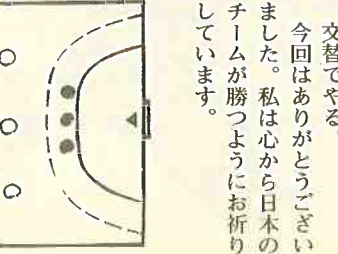 交替でやる。
今回はありがとうござい
ました。私は心から日本の
チームが勝つようにお祈り
しています。